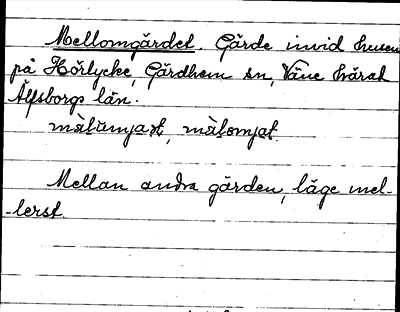 Mellomgärdet. Gärde invid husen
på Hörlycke, Gärdhem sn, Väne härad
Älfsborgs län.
màlʊmjaʂt, màlomjat.
Mellan andra gärden, läge mel-
-lerst.